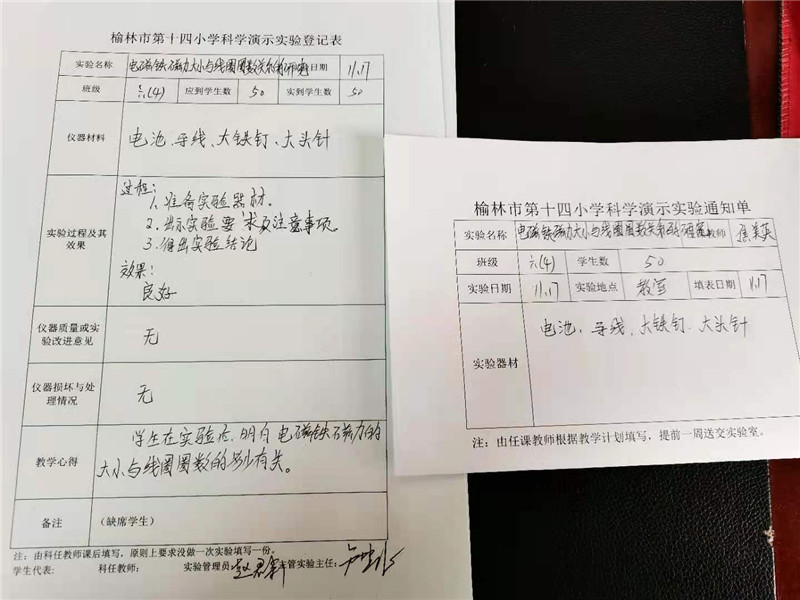 榆林市第十四小学科学演示实验登记表
实验名称 电磁铁磁力大小与线圈圈数关系的研究 日期 11.17
班级 六(4) 应到学生数 50 实到学生数 50
仪器材料 电池、导线、大铁钉、大头针
实验过程及其效果
过程:
1、准备实验器材.
2.出示实验要求及注意事项。
3.得出实验结论
效果:
良好
仪器质量或实验改进意见 无
仪器损坏与处理情况 无
教学心得
学生在实验后,明白电磁铁磁力的
大小与线圈圈数的多少有关。
备注 (缺席学生)
注:由科任教师课后填写,原则上要求没做一次实验填写一份。
学生代表: 科任教师: 实验管理员: 主管实验主任:
榆林市第十四小学科学演示实验通知单
实验名称 电磁铁磁力大小与线圈圈数关系的研究 教师
班级 六(4) 学生数 50
实验日期 11.17 实验地点 教室 填表日期 11.17
实验器材 电池、导线、大铁钉、大头针
注:由任课教师根据教学计划填写,提前一周送交实验室。